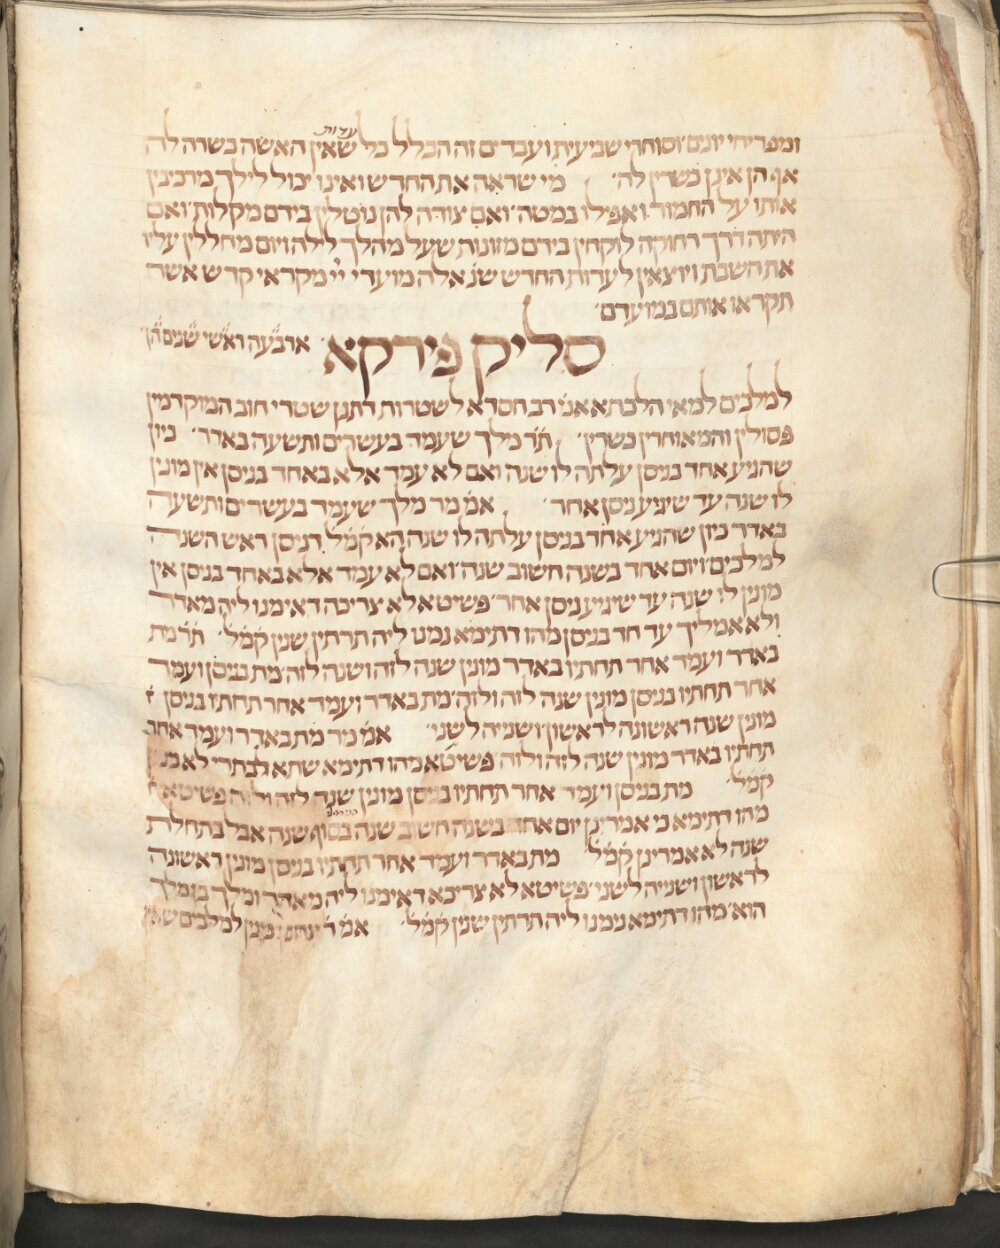 ומפריחי יונים וסוחרי שביעית ועבדים זה הכלל כל עדות שאין האשה כשרה לה
אף הן אינן כשרין לה׳ מי שראה את החדש ואינו יכול לילך מרכיבין
אותו על החמור ואפילו במטה׳ ואם צודה להן נוטלין בידם מקלות׳ ואם
היתה דרך רחוקה לוקחין בידם מזונות שעל מהלך לילה ויום מחללין עליו
את השבת ויוצאין לעדות החדש שנ׳ אלה מועדי ייי מקראי קדש אשר
תקראו אותם במועדם׳
סליק פירקא׳ ארבעה ראשי שנים הן׳
למלכים למאי הלכתא אמ׳ רב חסדא לשטרות דתנן שטרי חוב המוקדמין
פסולין והמאוחרין כשרין׳ ת֗ר מלך שעמד בעשרים ותשעה באדר׳ כיון
שהגיע אחד בניסן עלתה לו שנה ואם לא עמד אלא באחד בניסן אין מונין
לו שנה עד שיגיע ניסן אחר׳ אמ׳ מר מלך שעמד בעשרים ותשעה
באדר כיון שהגיע אחד בניסן עלתה לו שנה הא קמ֗ל דניסן ראש השנה
למלכים׳ ויום אחד בשנה חשוב שנה׳ ואם לא עמד אלא באחד בניסן אין
מונין לו שנה עד שיגיע ניסן אחר׳ פשיטא לא צריכה דאימנו ליה מאדר
ולא אמליך עד חד בניסן מהו דתימא נמנו ליה תרתין שנין קמ֗ל׳ ת֗ר מת
באדר ועמד אחר תחתיו באדר מונין שנה לזה ושנה לזה׳ מת בניסן ועמד
אחר תחתיו בניסן מונין שנה לזה ולזה׳ מת באדר ועמד אחר תחתיו בניסן
מונין שנה ראשונה לראשון ושנייה לשני׳ אמ׳ מר מת באדר ועמד אחר
תחתיו באדר מונין שנה לזה ולזה׳ פשיטא מהו דתימא שתא לבתרי לא
קמ֗ל׳ מת בניסן ועמד אחר תחתיו בניסן מונין שנה לזה ולזה פשיטא
מהו דתימא כי אמרינן יום אחד בשנה חשוב שנה בסוף שנה אבל בתחלת
שנה לא אמרינן קמ֗ל׳ מת באדר ועמד אחר תחתיו בניסן מונין ראשונה
לראשון ושנייה לשני׳ פשיטא לא צריכא דאימנו ליה מאדר ומלך בן מלך
הוא׳ מהו דתימא נימנו ליה תרתין שנין קמ֗ל׳ אמ׳ ר׳ יוחנן מנין למלכים